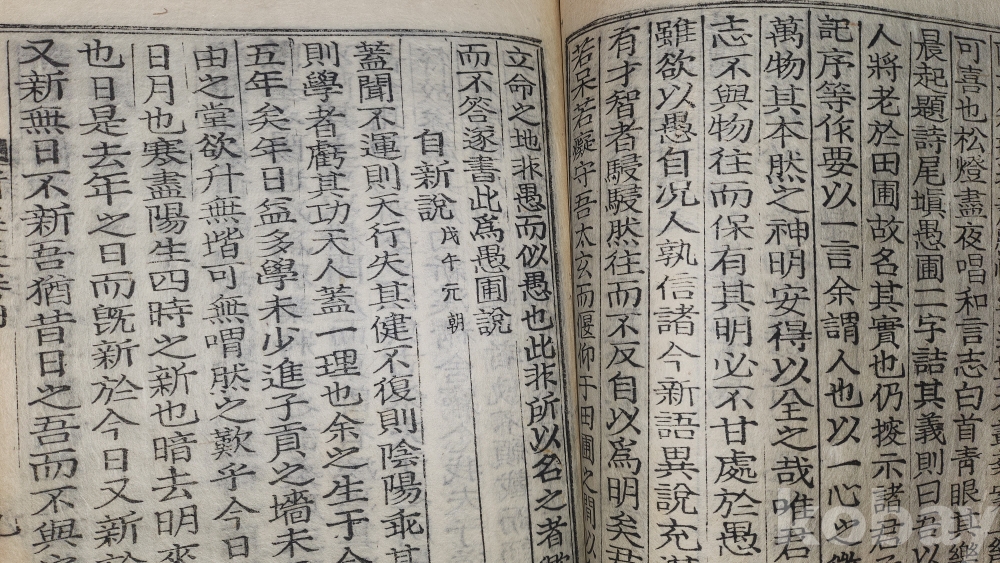 可喜也松燈盡夜唱和言志白首靑眼其樂
晨起題詩尾塡愚圃二字詰其義則曰吾以
人將老於田圃故名其實也仍接示諸君子
記序等作要以一言余謂人也以一心之
萬物其本然之神明安得以全之哉唯君
志不與物往而保有其明必不甘處於愚
雖欲以愚自况人孰信諸今新語異說充
有才智者駸駸然往而不反自以爲明矣君
若呆若癡守吾太玄而偃仰于田圃之間以
立命之地非愚而似愚也此非所以名之者
而不答遂書此爲愚圃說
自新說 戊午元朝
蓋聞不運則天行失其健不復則陰陽乖其
則學者虧其功天人蓋一理也余之生于今
五年矣年日益多學未少進子貢之墻未
由之堂欲升無堦可無喟然之歎乎今日
日月也寒盡陽生四時之新也暗去明來
也日是去年之日而旣新於今日又新於
又新無日不新吾猶昔日之吾而不與